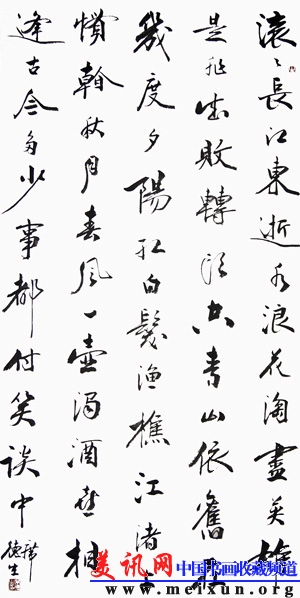 滚〻長江東逝水浪花淘盡英雄
是非成敗轉頭空青山依舊在
幾度夕陽紅白髮漁樵江渚上
慣看秋月春風一壺濁酒喜相
逢古今多少事都付笑談中
德生
美讯网 中国书画收藏频道
www.meixun.org